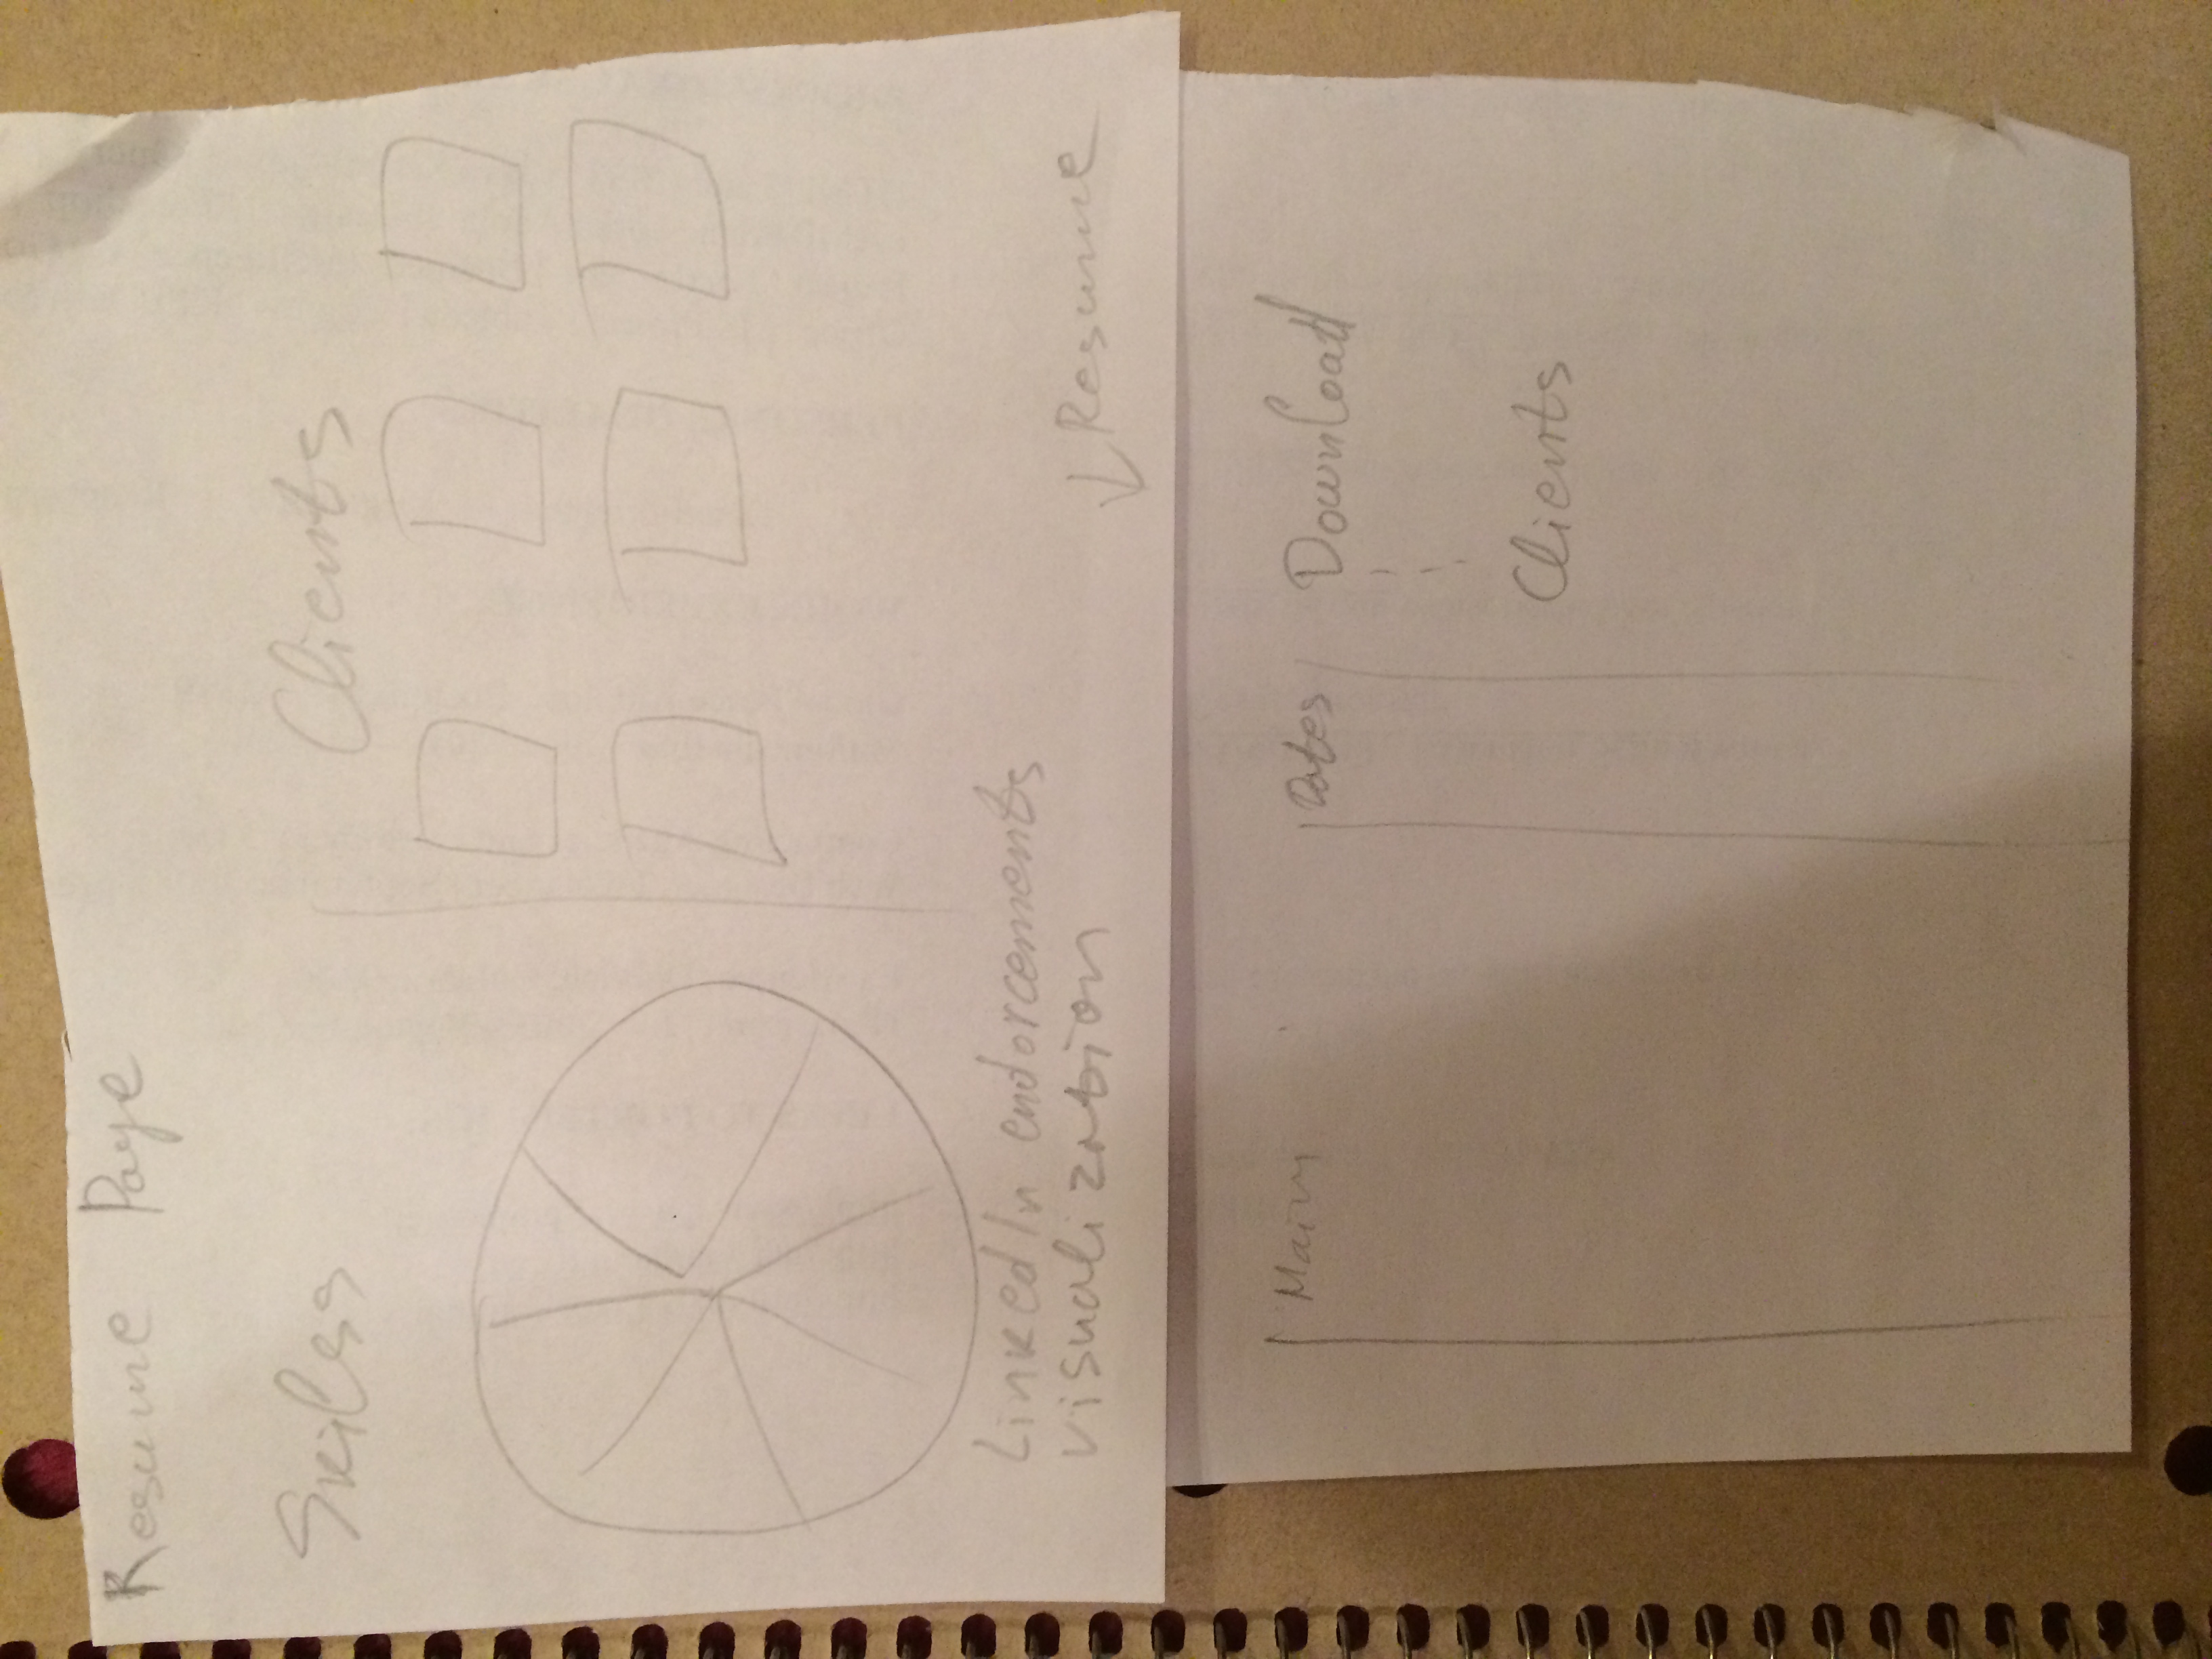 Resume Page
Skilss
Clients
LinkedIn endorcements
visualization
↓ Resume
Main
Dates
Download
Clients